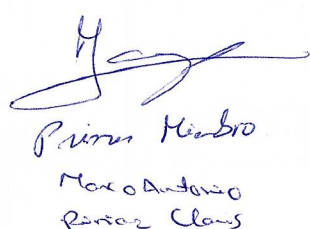 Primer Miembro
Marco Antonio
Claus